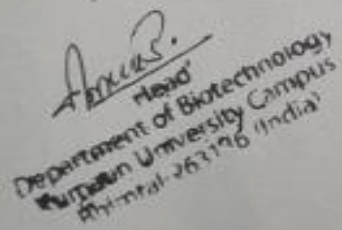 Head
Department of Biotechnology
Kumaun University Campus
Bhimtal-263136 (India)